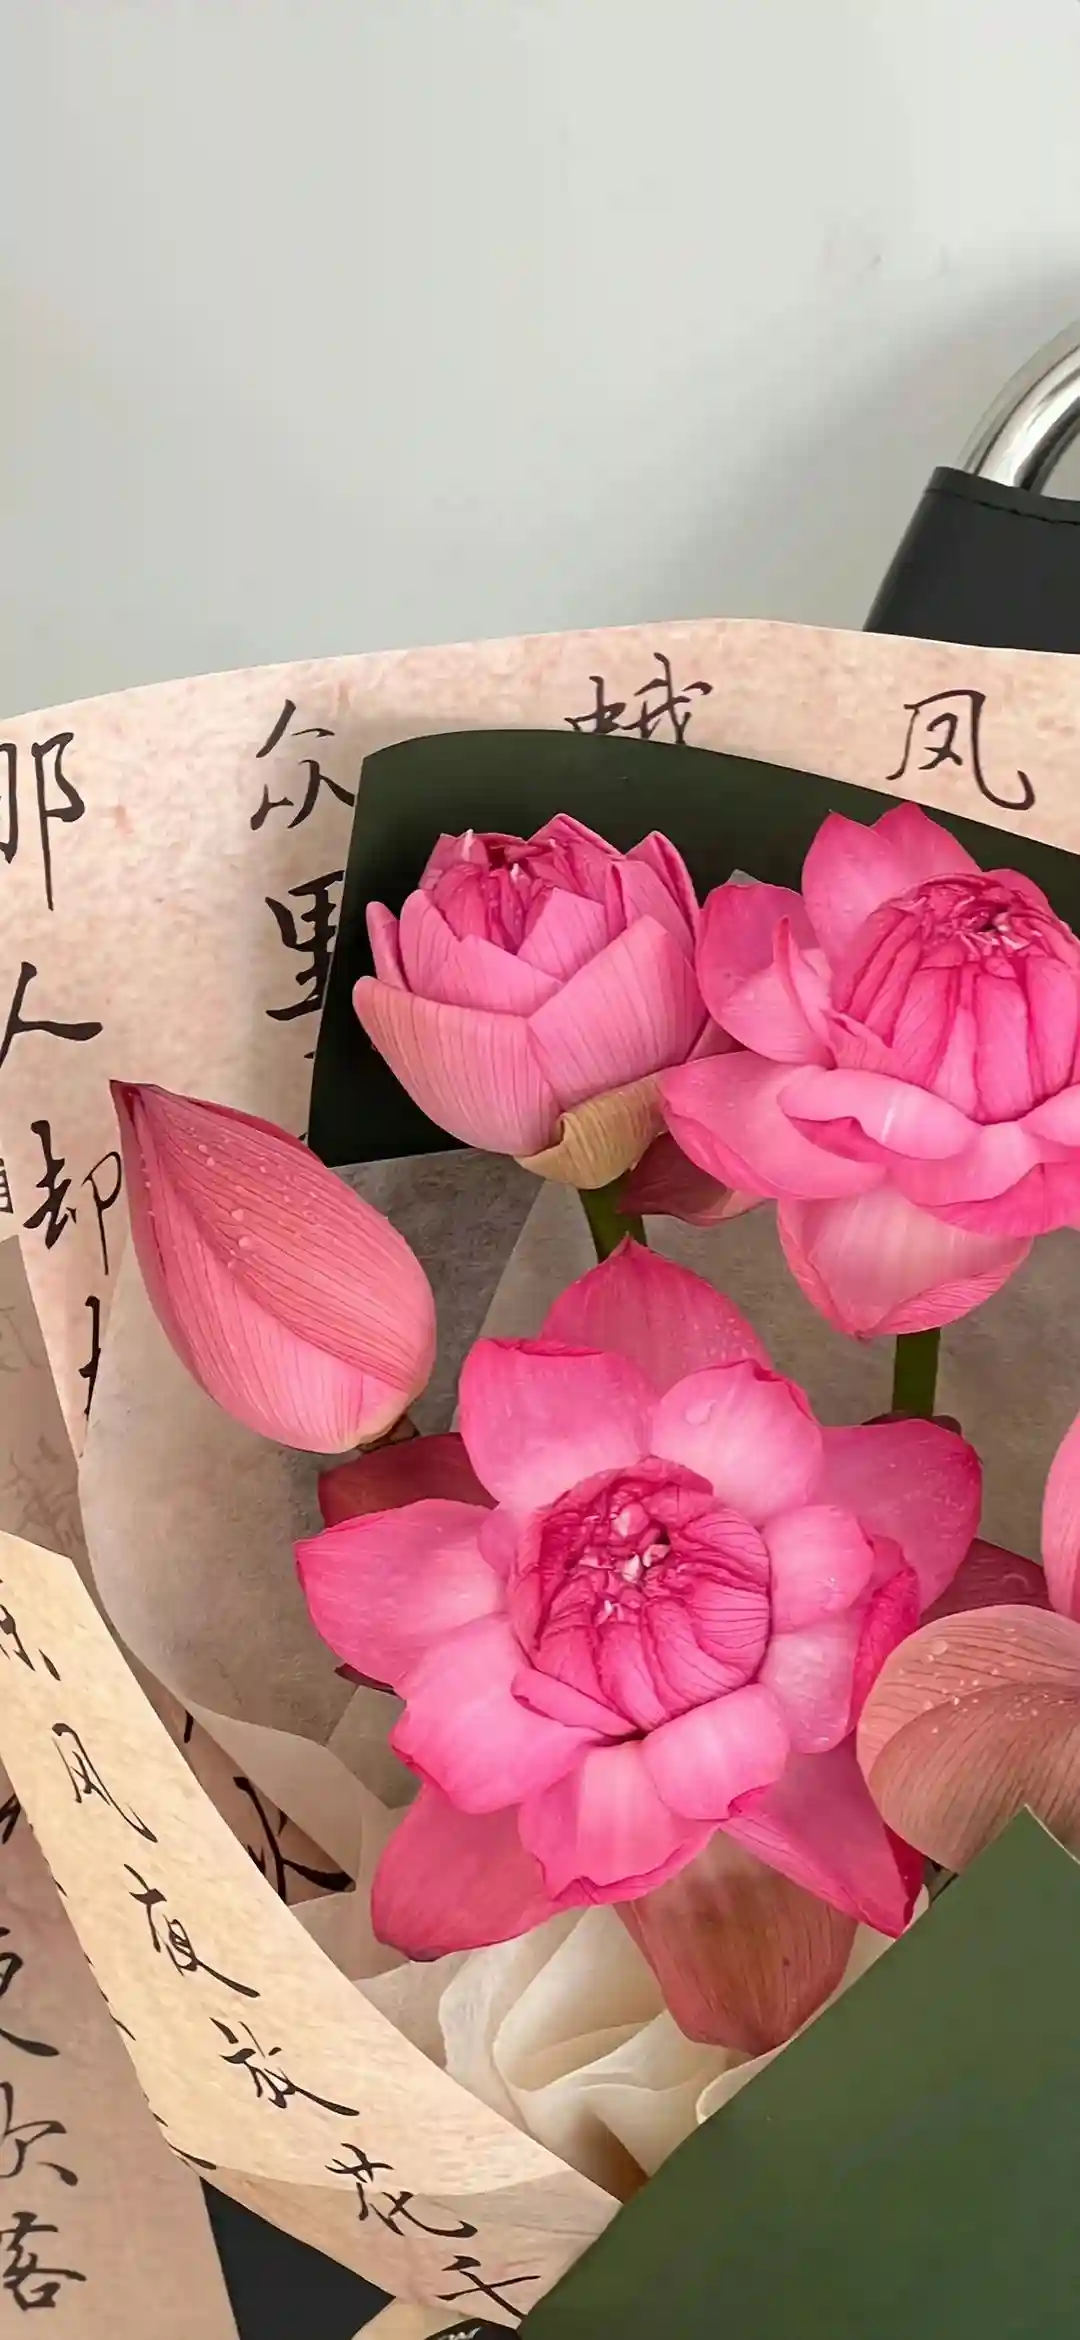 凤
蛾
众里
那人却
东风夜放花千
吹落